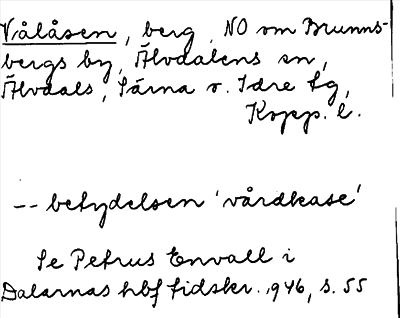 Vålåsen, berg NO om Brunns-
bergs by, Älvdalens sn,
Älvdals, Särna o. Idre tg,
Kopp. l.
-- betydelsen 'vårdkase'
Se Petrus Envall i
Dalarnas hbf tidskr. 1946, s. 55